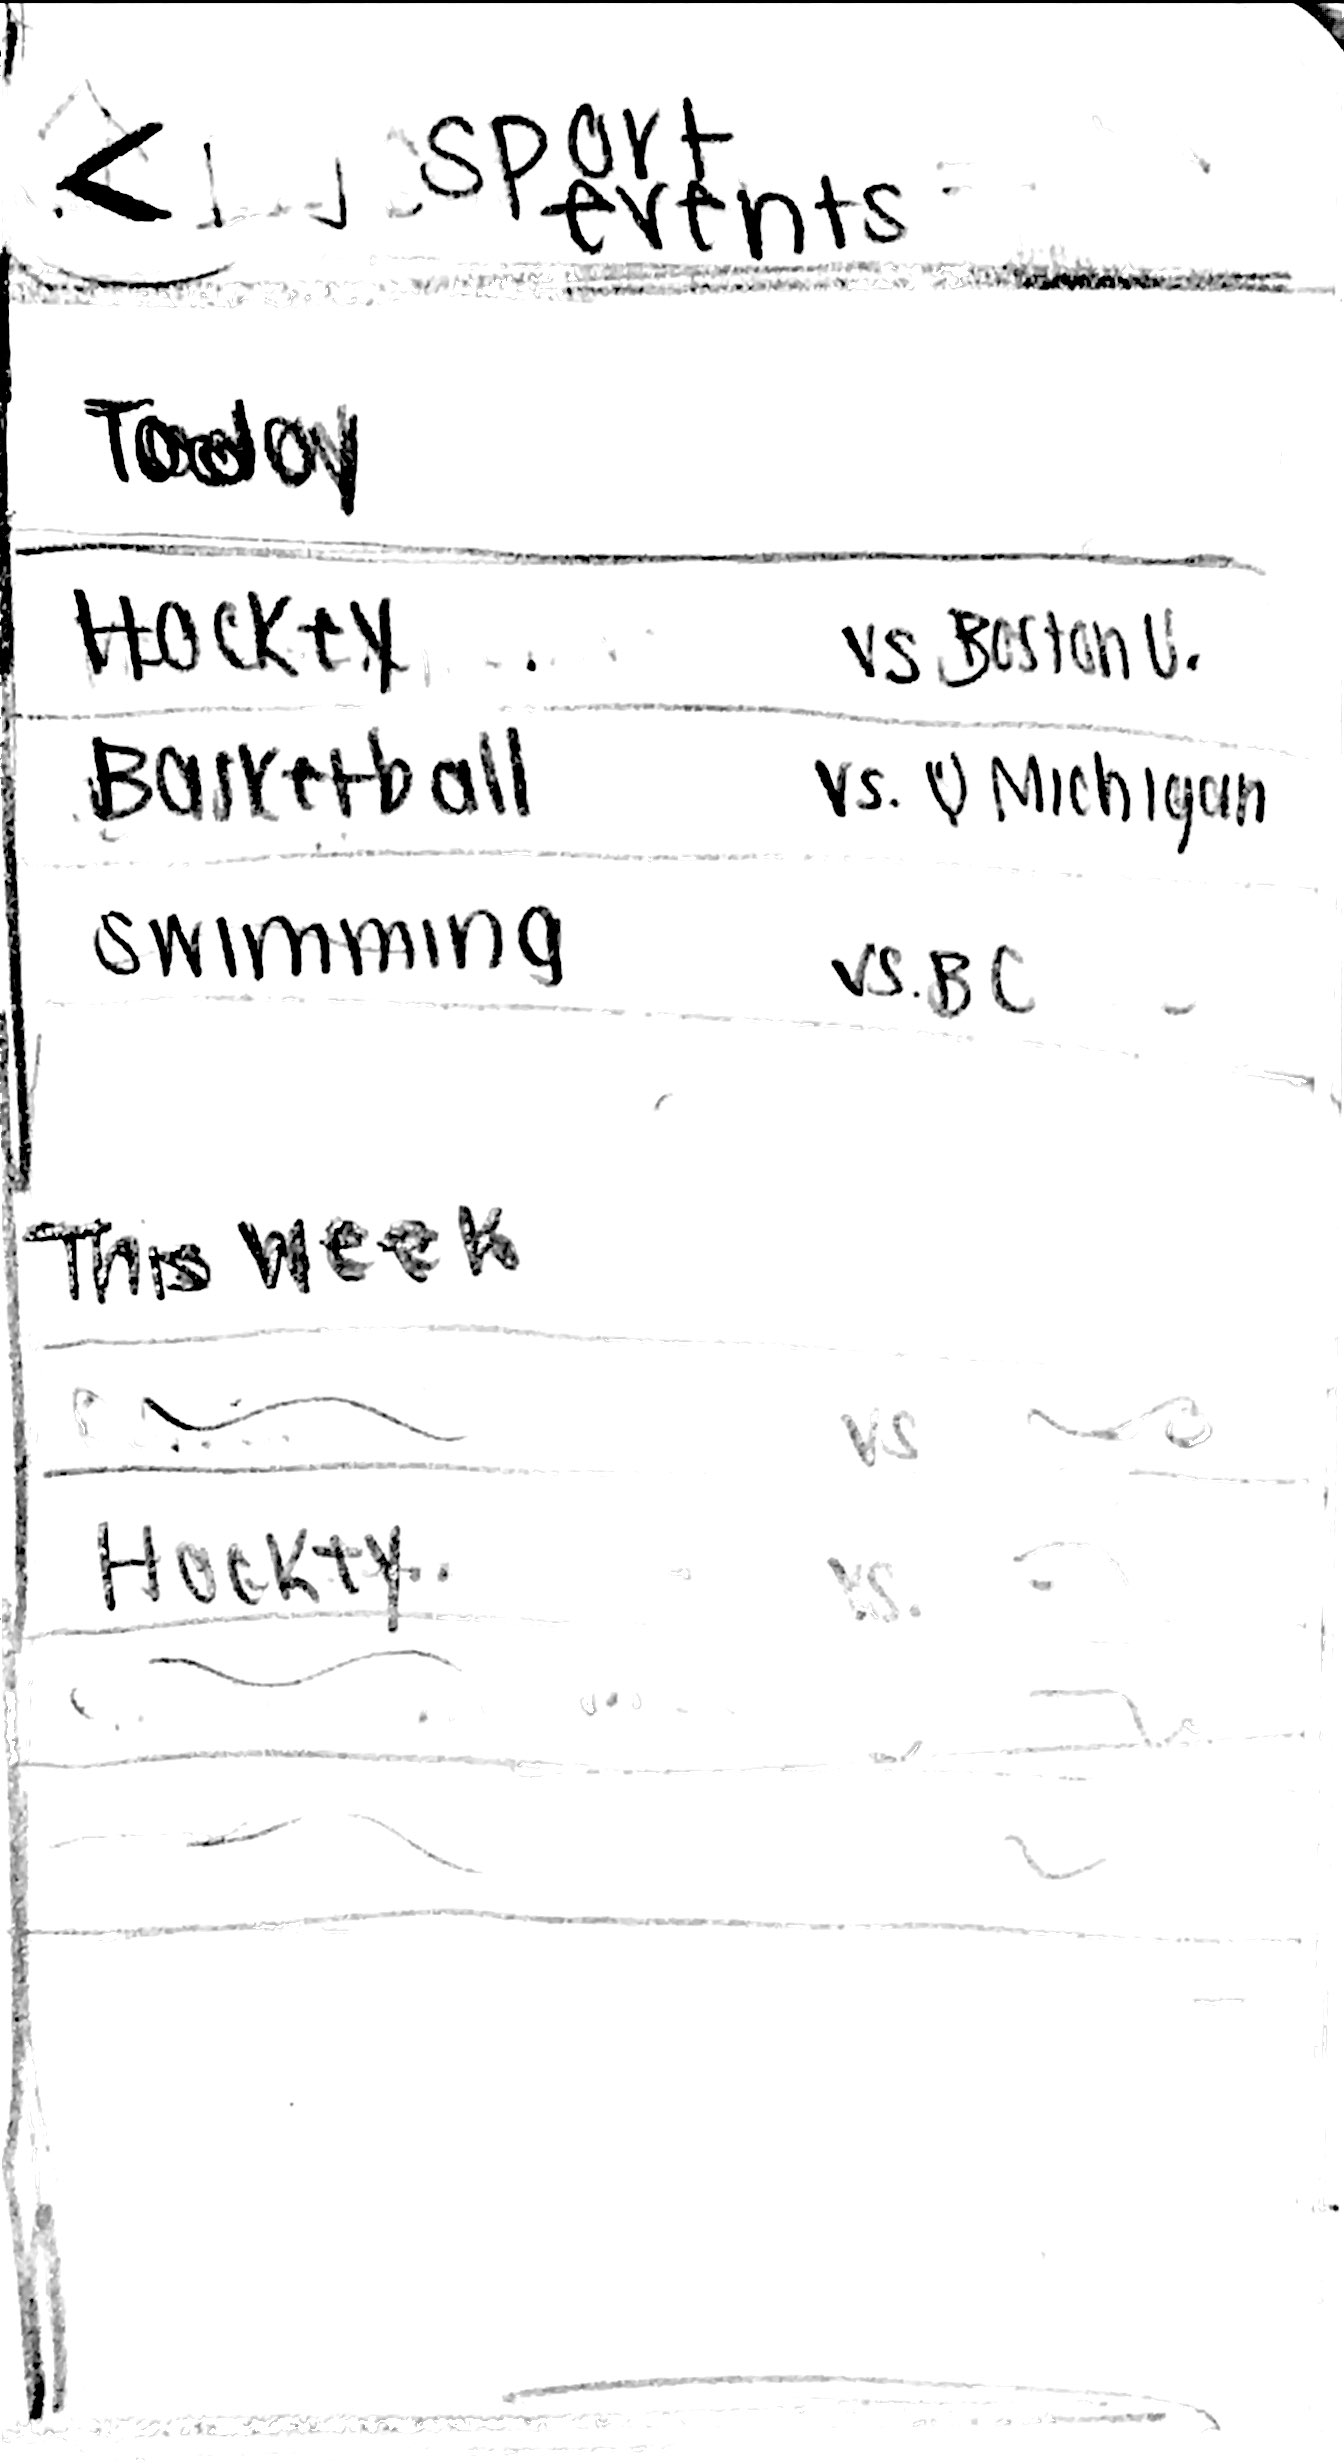 < sport
events
Today
Hockey vs Boston U.
Basketball vs. U Michigan
swimming vs. BC
This week
vs
Hockey vs.